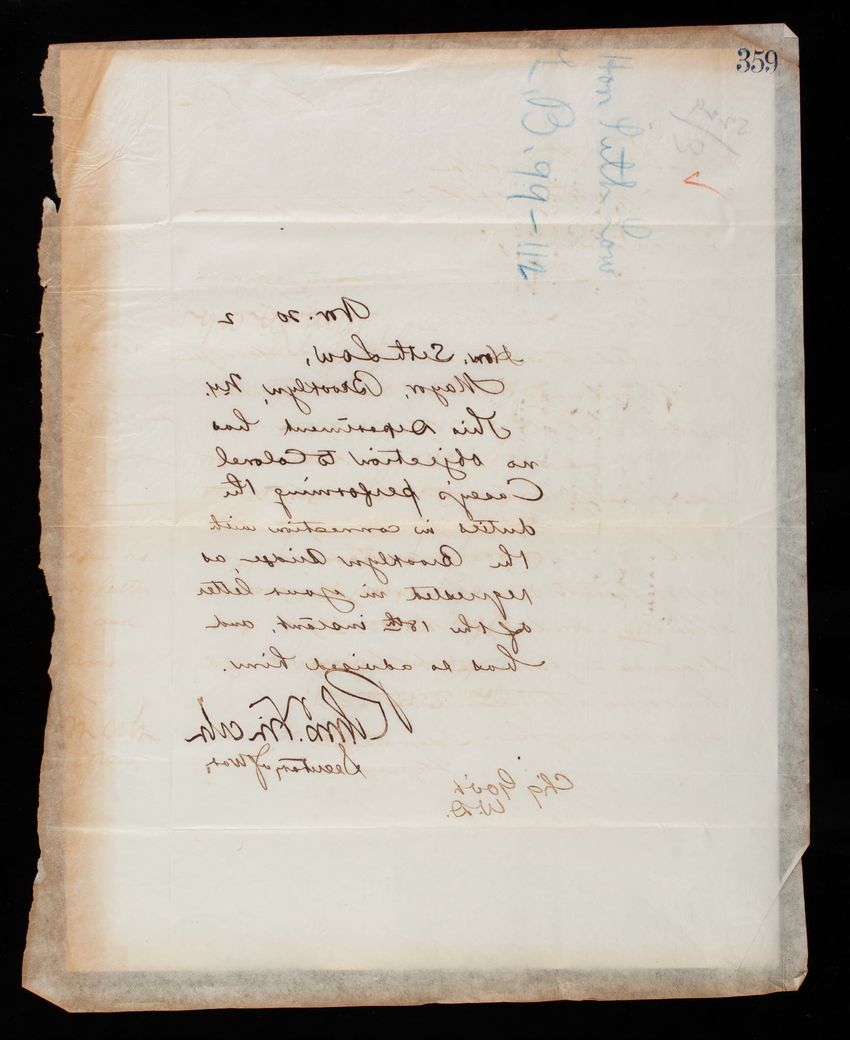 359
Hon Seth Low
L.B. 99-112
Nov. 20 2
Hon. Seth Low,
Mayor, Brooklyn, N.Y.
This Department has
no objection to Colonel
Casey's performing the
duties in connection with
the Brooklyn Bridge, as
requested in your letter
of the 18th instant, and
has so advised him.
Secretary of War,
Ch'g Gov't
W.D.